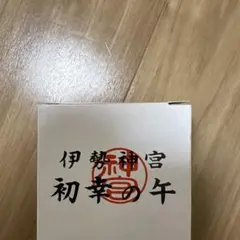 伊勢神宮
初幸の午
神宮